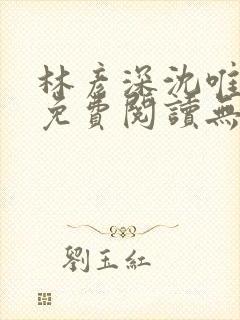 林彥深沈唯
免費閱讀無
劉玉紅